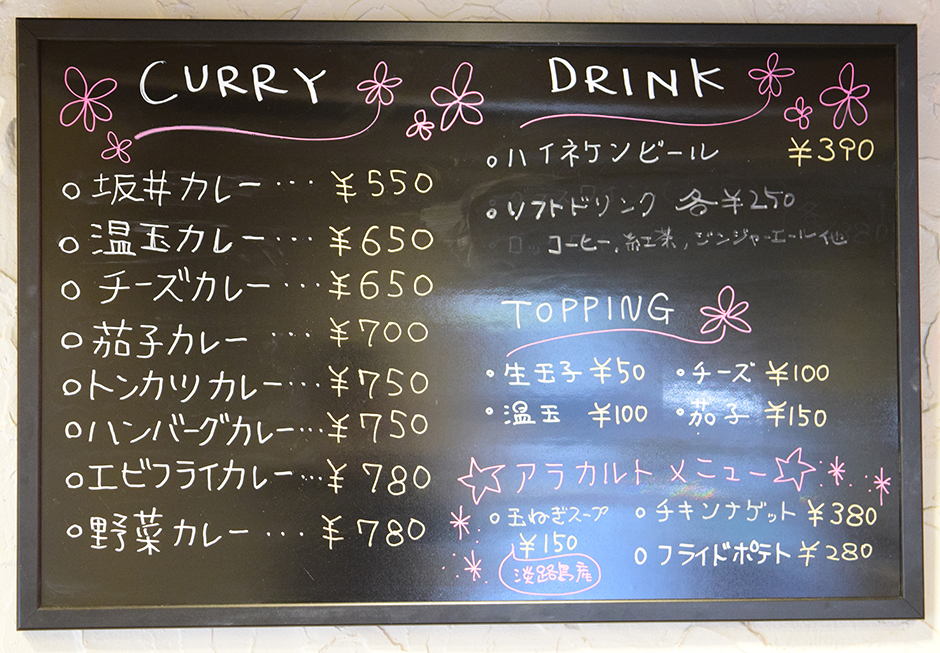 CURRY
○坂井カレー… ¥550
○温玉カレー… ¥650
○チーズカレー… ¥650
○茄子カレー … ¥700
○トンカツカレー… ¥750
○ハンバーグカレー… ¥750
○エビフライカレー… ¥780
○野菜カレー … ¥780
DRINK
○ハイネケンビール ¥390
○ソフトドリンク 各¥250
コーヒー、紅茶、ジンジャーエール他
TOPPING
・生玉子 ¥50 ・チーズ ¥100
・温玉 ¥100 ・茄子 ¥150
☆アラカルトメニュー☆
○玉ねぎスープ ○チキンナゲット ¥380
¥150 ○フライドポテト ¥280
淡路島産